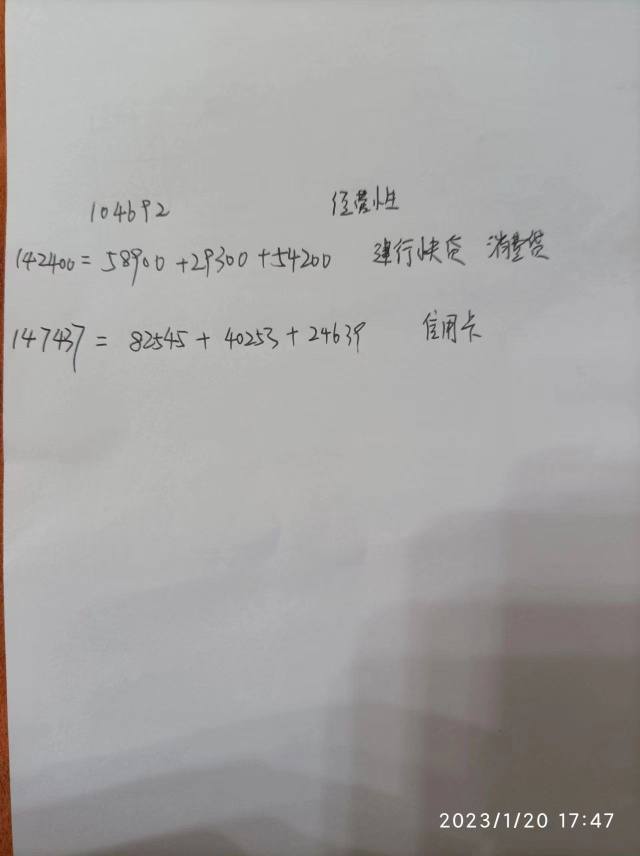 104692 经营性
142400 = 58900 + 29300 + 54200 建行快贷 消费贷
147437 = 82545 + 40253 + 24639 信用卡
2023/1/20 17:47